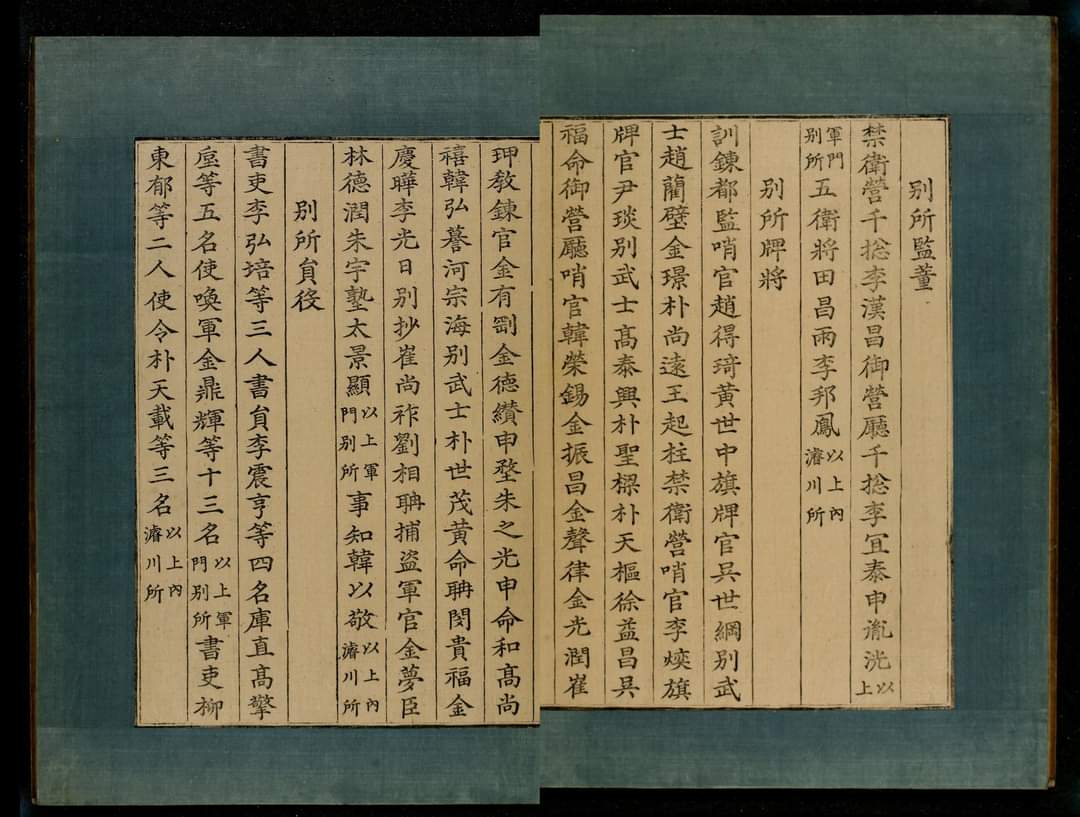 别所監董
禁衛營千摠李漢昌御營廳千摠李冝泰申胤洸以上
軍門别所五衛將田昌雨李邦鳳以上內濬川所
别所牌將
訓鍊都監哨官趙得琦黃世中旗牌官吳世綱别武
士趙藺璧金璟朴尚遠王起柱禁衛營哨官李旗
牌官尹琰别武士髙泰興朴聖樑朴天樞徐益昌吳
福命御營廳哨官韓榮錫金振昌金聲律金光潤崔
玾敎鍊官金有金德鑽申朱之光申命和髙尚
禧韓弘謩河宗海别武士朴世茂黃命聃閔貴福金
慶曄李光日别抄崔尚祚劉相聃捕盗軍官金夢臣
林德潤朱宇塾太景顯以上軍門别所事知韓以敬以上內濬川所
别所負役
書吏李弘培等三人書負李震亨等四名庫直髙擎
垕等五名使喚軍金鼎輝等十三名以上軍門别所書吏柳
東郁等二人使令朴天載等三名以上內濬川所